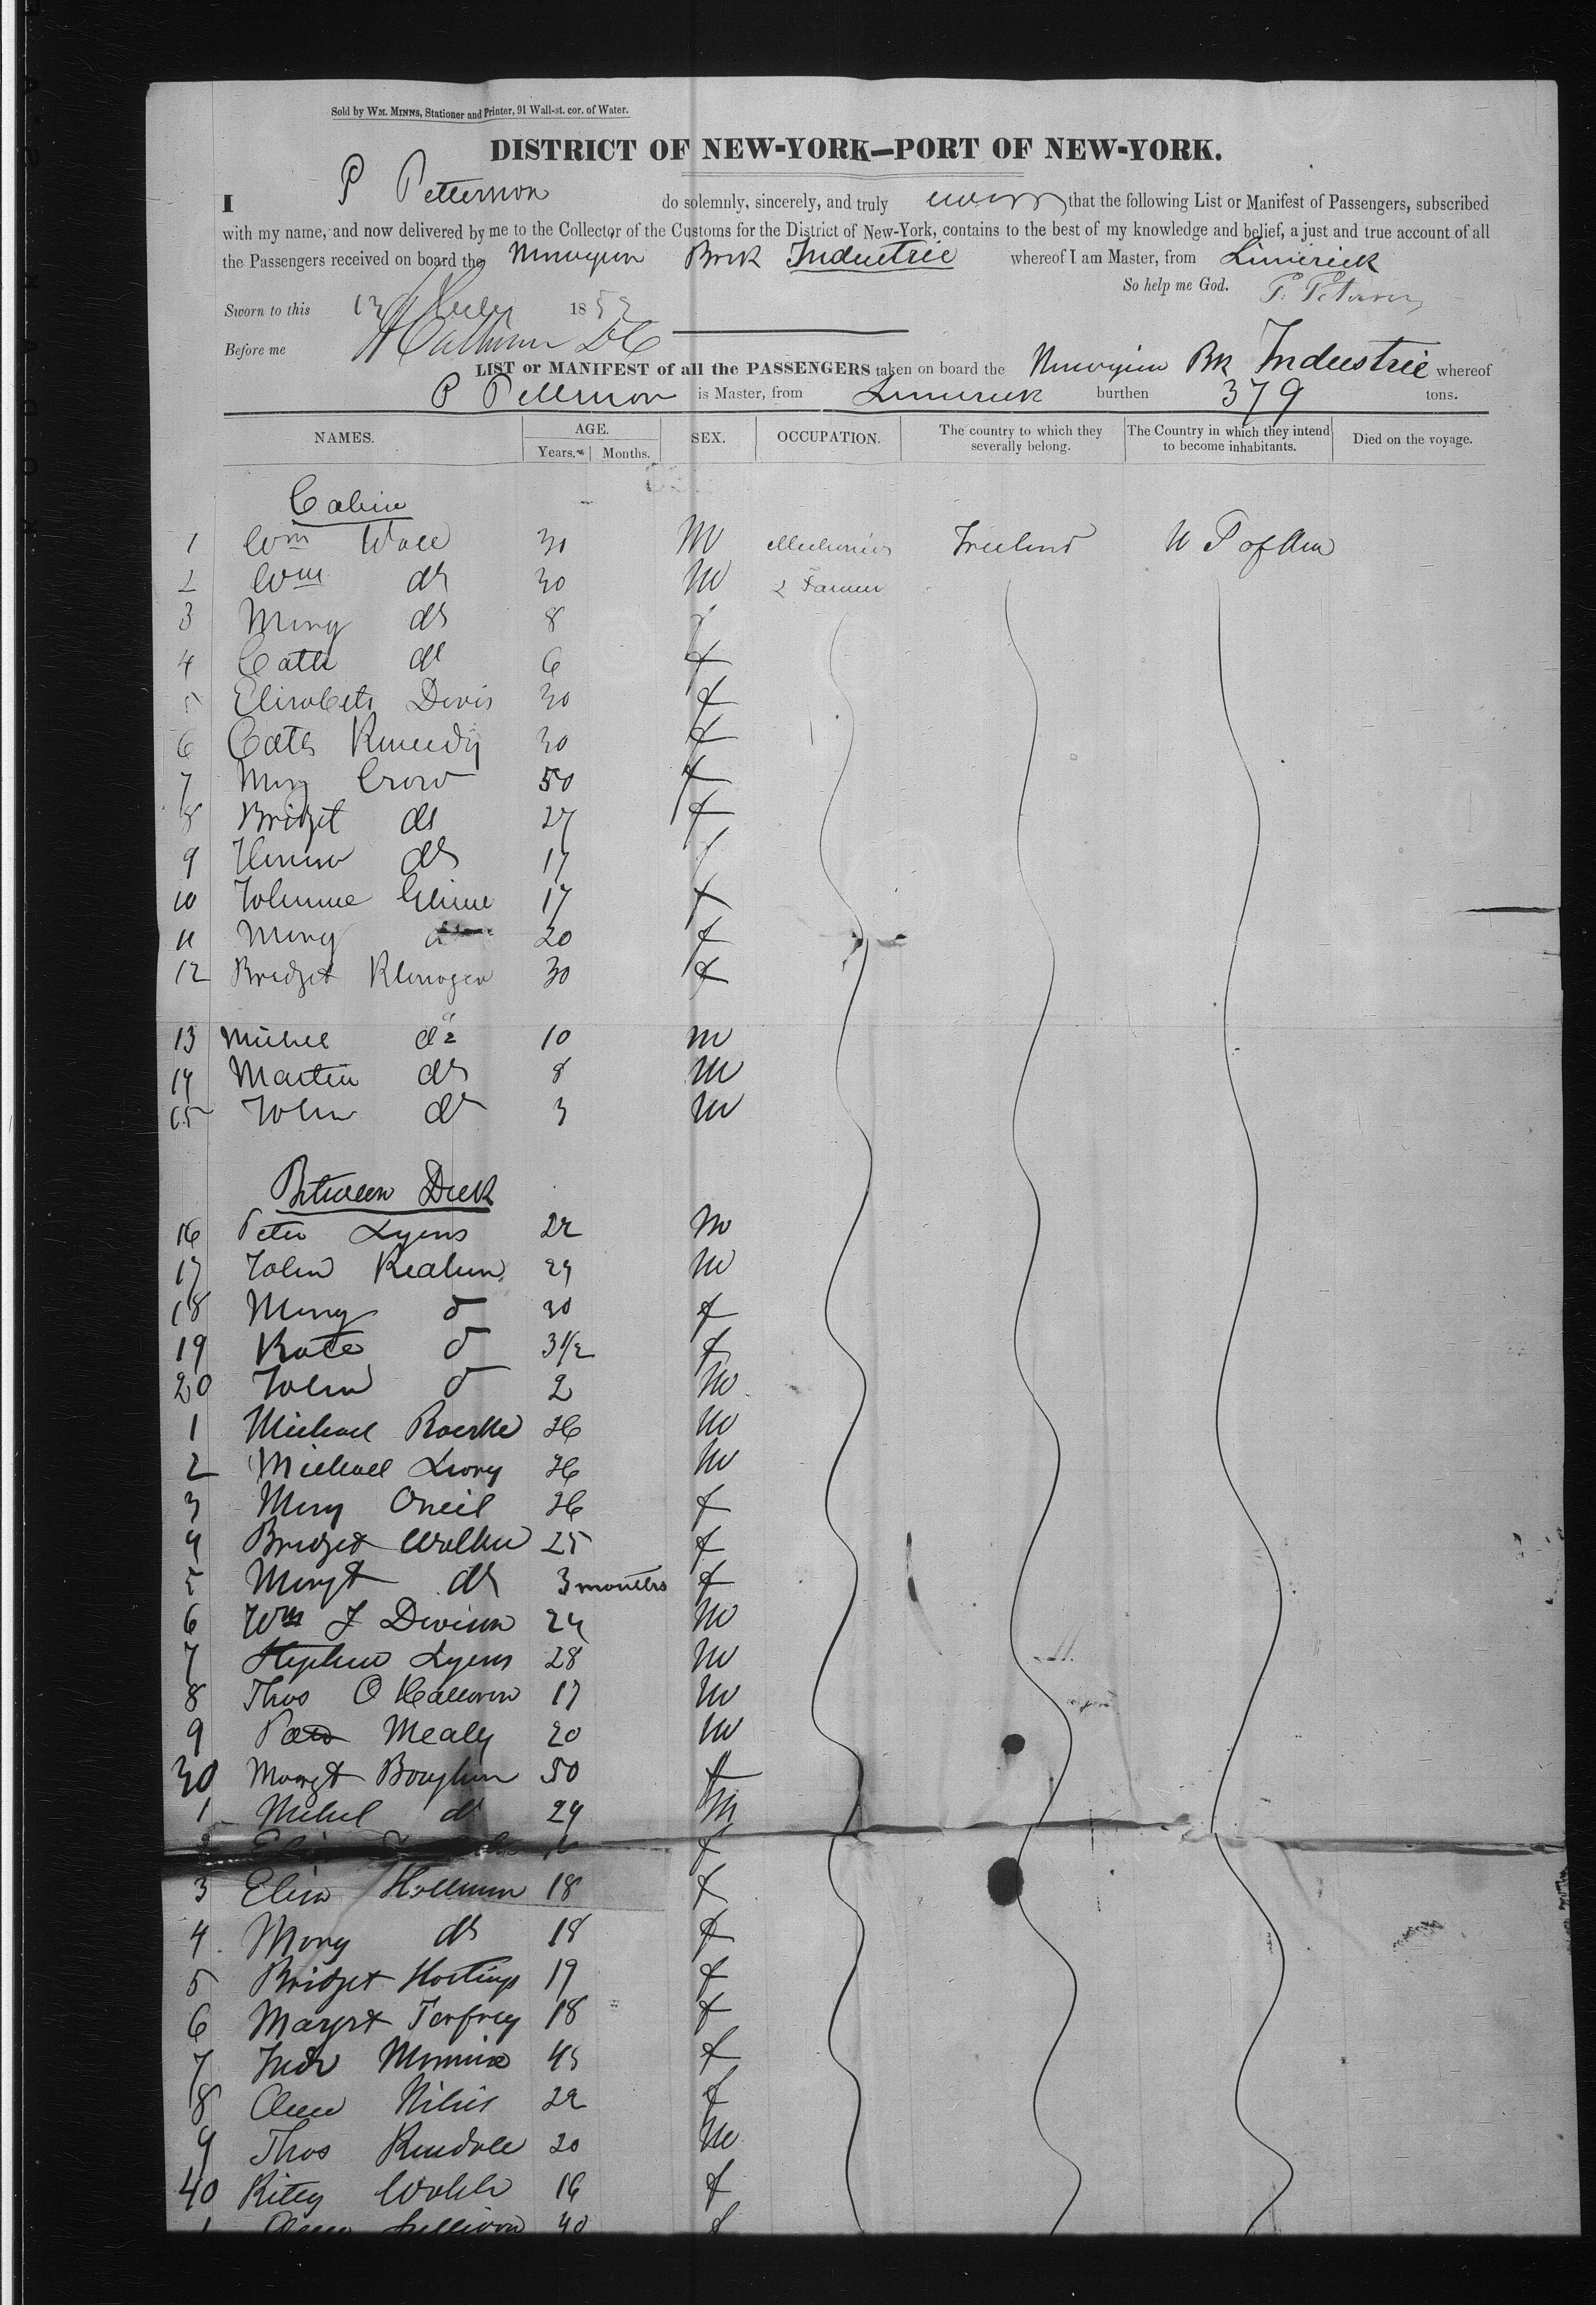 Sold by WM. MINNS, Stationer and Printer, 91 Wall-st. cor. of Water.
DISTRICT OF NEW-YORK—PORT OF NEW-YORK.
I P Petterson do solemnly, sincerely, and truly swear that the following List or Manifest of Passengers, subscribed
with my name, and now delivered by me to the Collector of the Customs for the District of New-York, contains to the best of my knowledge and belief, a just and true account of all
the Passengers received on board the Norwegian Bark Industrie whereof I am Master, from Limerick
So help me God.
Sworn to this 13 July 185
Before me
LIST or MANIFEST of all the PASSENGERS taken on board the Norwegian Bk Industrie whereof
P Petterson is Master, from Limerick burthen 379 tons.
NAMES. AGE. SEX. OCCUPATION. The country to which they severally belong. The Country in which they intend to become inhabitants. Died on the voyage.
Years. Months.
Cabin
1 Wm Wall 30 M Mechanics Ireland U S of Am
2 Wm do 30 M 2 Farmer
3 Mary do 8 f
4 Cath do 6 f
5 Elisabeth Davis 30 f
6 Cath Kennedy 30 f
7 Mary Crow 50 f
8 Bridget do 27 f
9 do 17 f
10 17 f
11 Mary 20 f
12 Bridget 30 f
13 Michel do 10 m
14 Martin do 8 M
15 John do 3 M
Between Deck
16 Peter Lyens 22 M
17 John 29 M
18 Mary d 30 f
19 Kate d 3 1/2 f
20 John d 2 M
1 Michael Roerke 26 M
2 Michael Leory 26 M
3 Mary Oneil 26 f
4 Bridget 25 f
5 Margt do 3 months f
6 Wm J Davison 24 M
7 Stephen Lyens 28 M
8 Thos O Halloran 17 M
9 Mealy 20 M
30 Margt Boughan 50 f
1 Michel d 24 M
2 f
3 Eliza 18 f
4 Mary do 18 f
5 Bridget Hastings 19 f
6 Margrt 18 f
7 45 f
8 22 f
9 Thos Kendale 20 M
40 Kitty 16 f
1 Sullivan 40 f